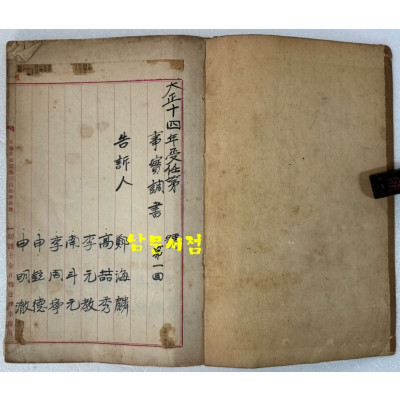 大正十四年受任第 號
事實調書 第一回
告訴人
鄭海麟
高喆秀
李元敎
南斗元
李周寧
申鉉德
申明澈
남문서점